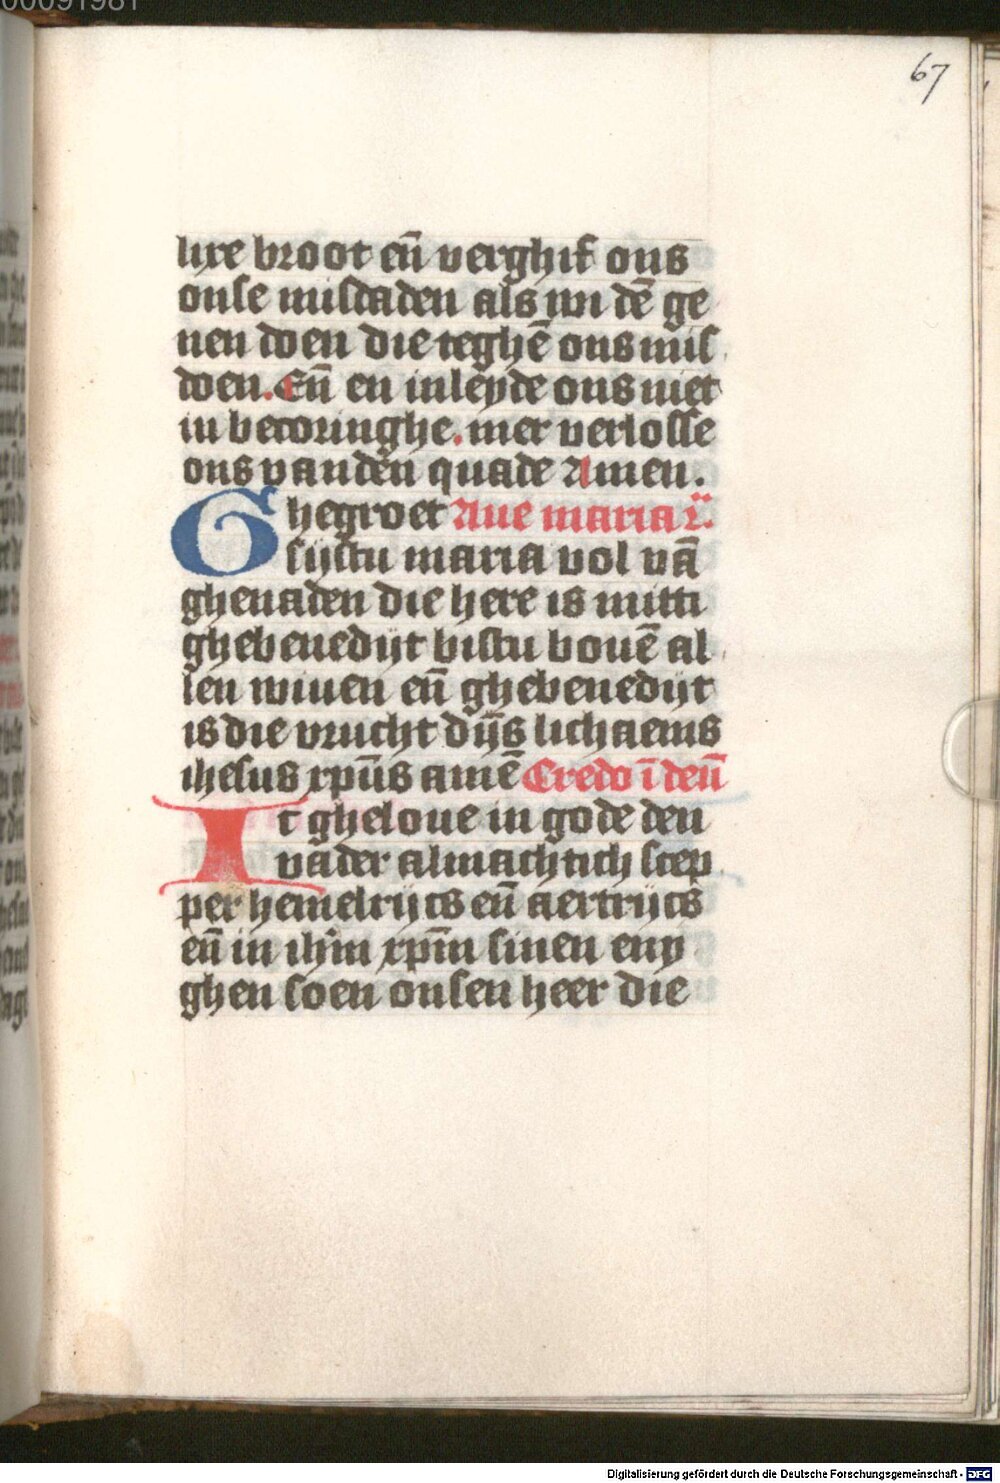 00091981
67
lixe broot eñ verghif ons
onse misdaden als wi dē ge
nen doen die teghē ons mis
doen. Eñ en inleyde ons niet
in becoringhe. mer verlosse
ons van den quade Amen.
Ghegroet Aue maria
sijstu maria vol vā
ghenaden die here is mitti
ghebenedijt bistu bouē al
len wiuen eñ ghebenedijt
is die vrucht dijns lichaems
ihesus xpūs amē Credo ī deū
Ic gheloue in gode den
vader almachtich scep
per hemelrijcs eñ aertrijcs
eñ in ihm̄ xpm̄ sinen eny
ghen soen onsen heer die
Digitalisierung gefördert durch die Deutsche Forschungsgemeinschaft - DFG